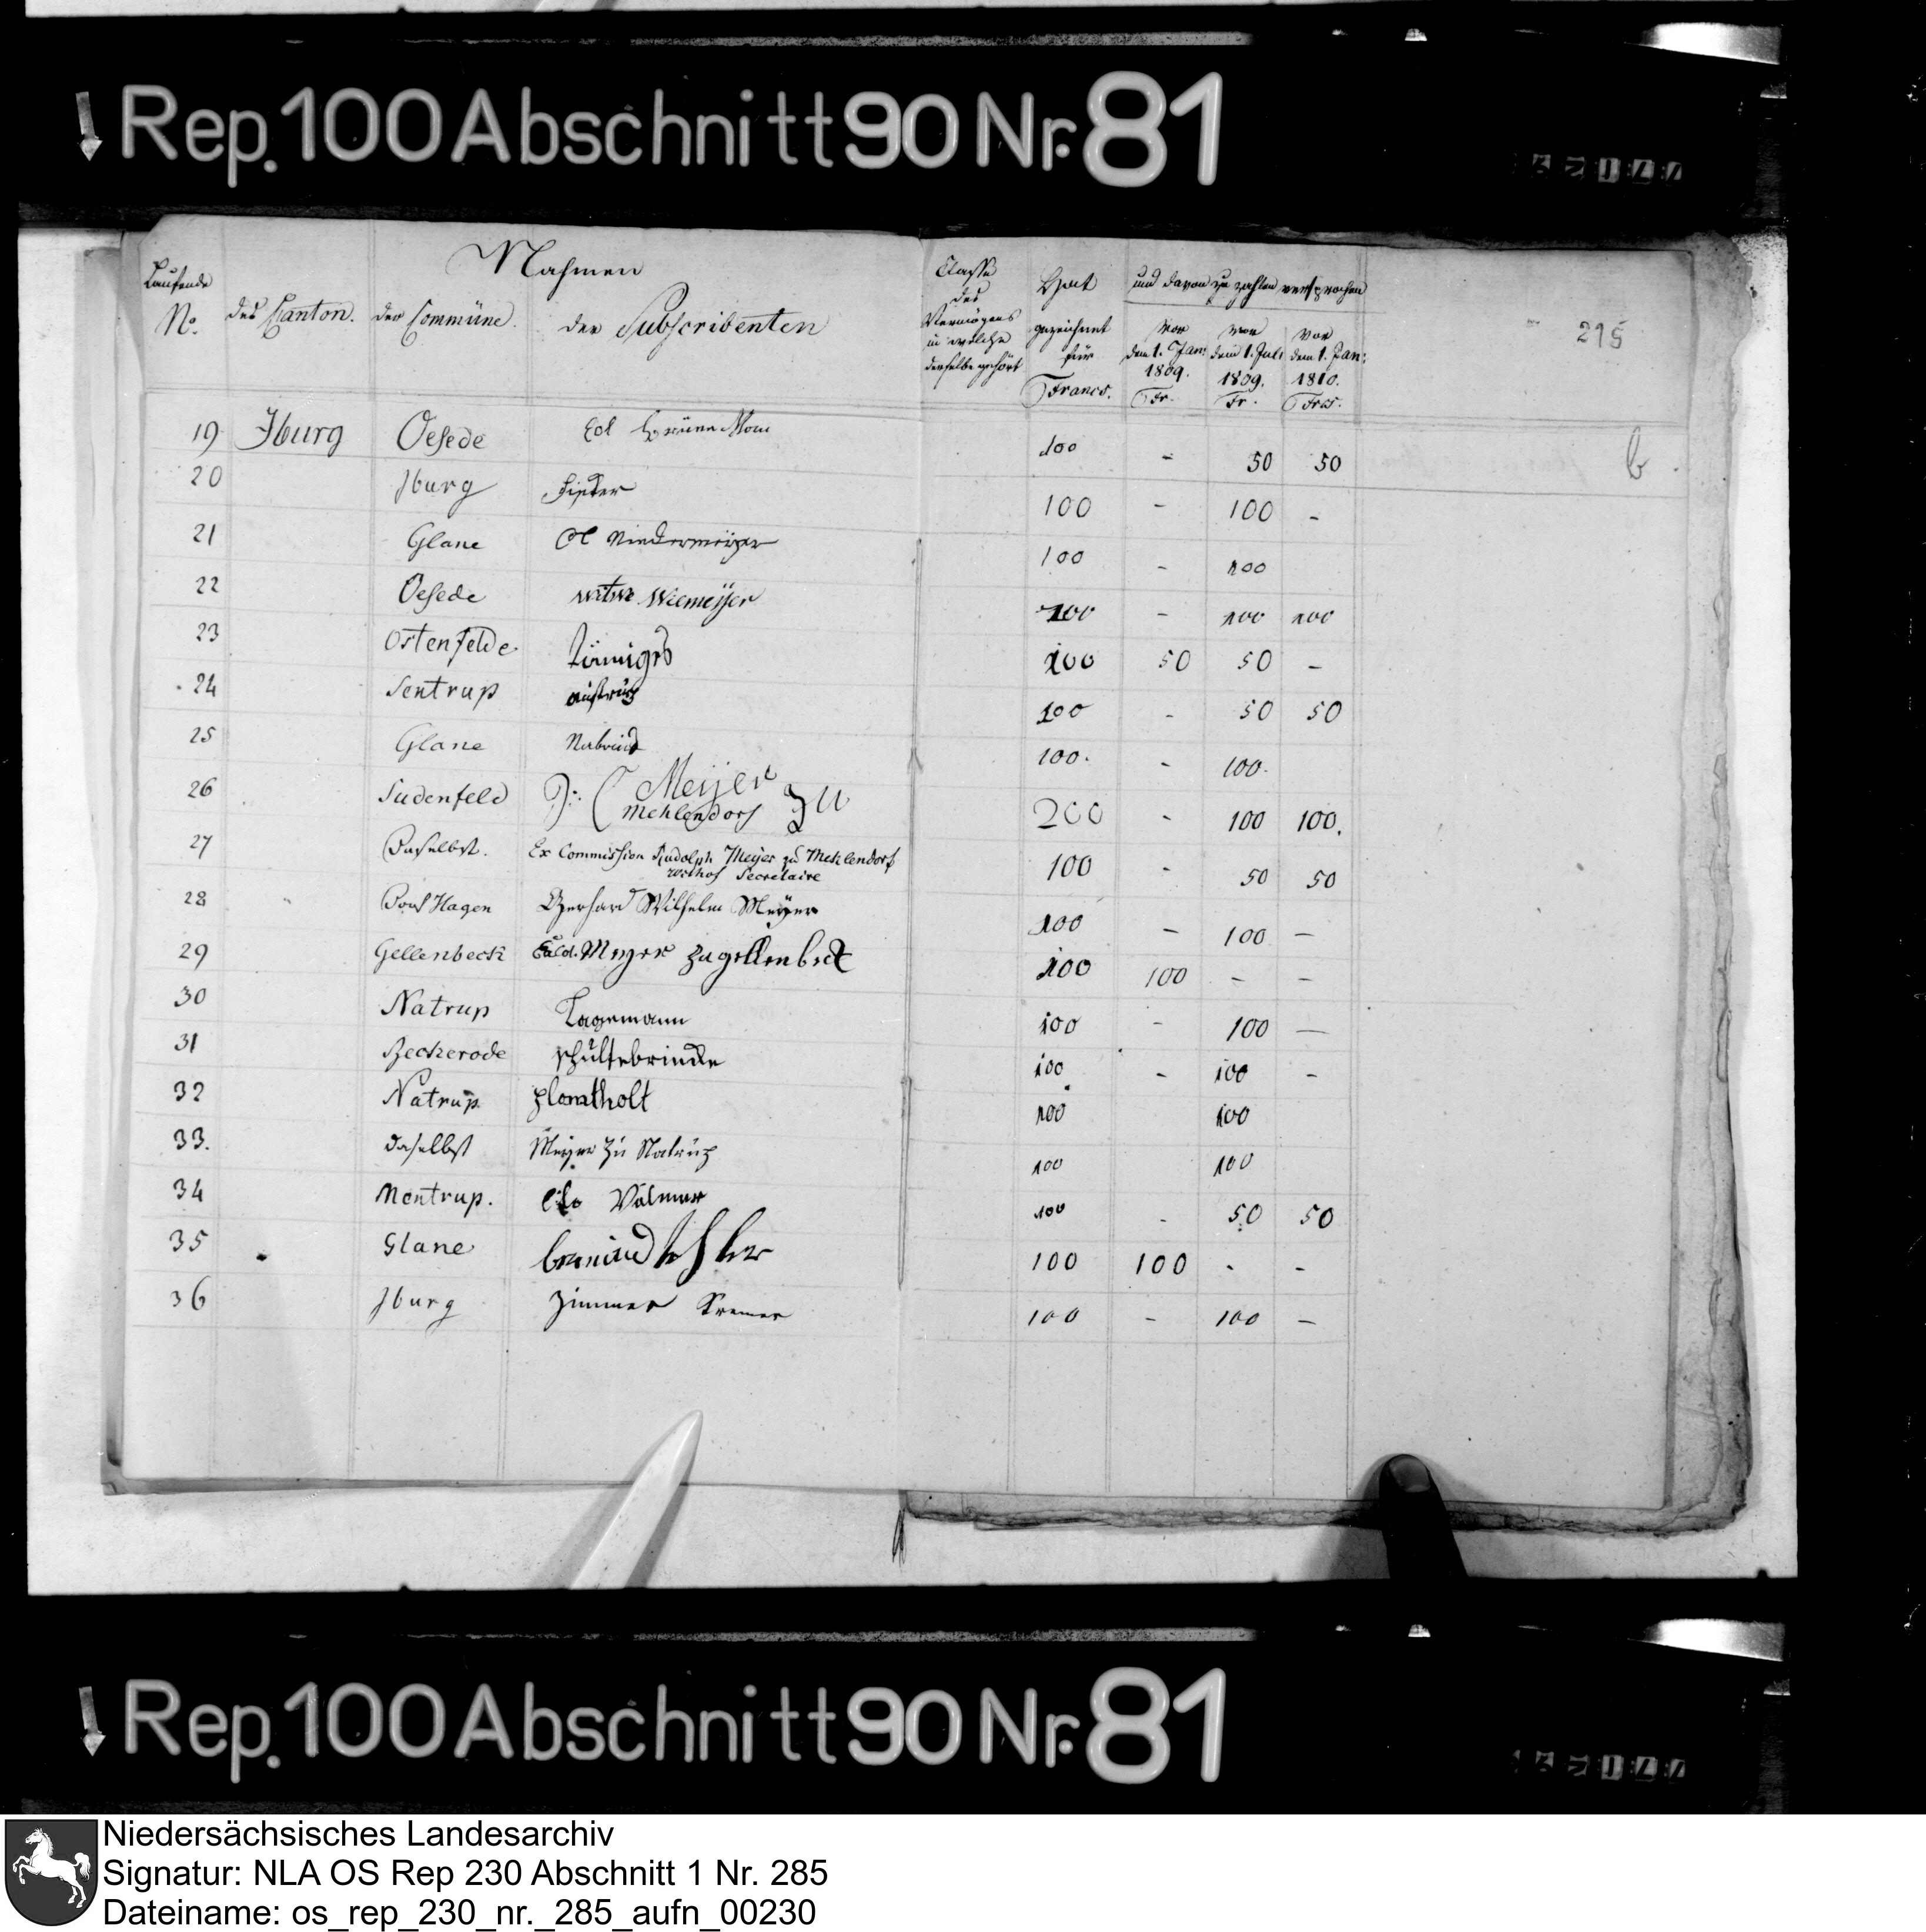 Rep. 100 Abschnitt 90 Nr. 81
Nahmen
Laufende No. des Canton. der Commüne. der Subscribenten
Classe des Vermögens in welche derselbe gehört
Hat gezeichnet für Francs.
und davon zu zahlen versprochen
vor dem 1. Jan: 1809. Fr.
vor dem 1. Juli 1809. Fr.
vor dem 1. Jan: 1810. Frcs.
215
b
19 Iburg Oesede Col 100 - 50 50
20 Iburg 100 - 100 -
21 Glane Col Niedermeyer 100 - 100
22 Oesede witwe Wiemeyer 100 - 100 100
23 Ostenfelde 100 50 50 -
24 Sentrup 100 - 50 50
25 Glane 100. - 100.
26 Sudenfeld Meijer zu Mehlendorf 200 - 100 100.
27 Daselbst. Ex Commission Rudolph Meyer zu Mehlendorf
Secretaire 100 - 50 50
28 Dorf Hagen Gerhard Wilhelm Meyer 100 - 100 -
29 Gellenbeck Meyer zu gellenbeck 100 100 - -
30 Natrup 100 - 100 -
31 Beckerode schultebrinde 100 - 100 -
32 Natrup 100 100
33. daselbst Meyer zu Natrup 100 100
34 Mentrup. 100 - 50 50
35 Glane 100 100 - -
36 Iburg Zimmer Kremer 100 - 100 -
Rep. 100 Abschnitt 90 Nr. 81
Niedersächsisches Landesarchiv
Signatur: NLA OS Rep 230 Abschnitt 1 Nr. 285
Dateiname: os_rep_230_nr._285_aufn_00230